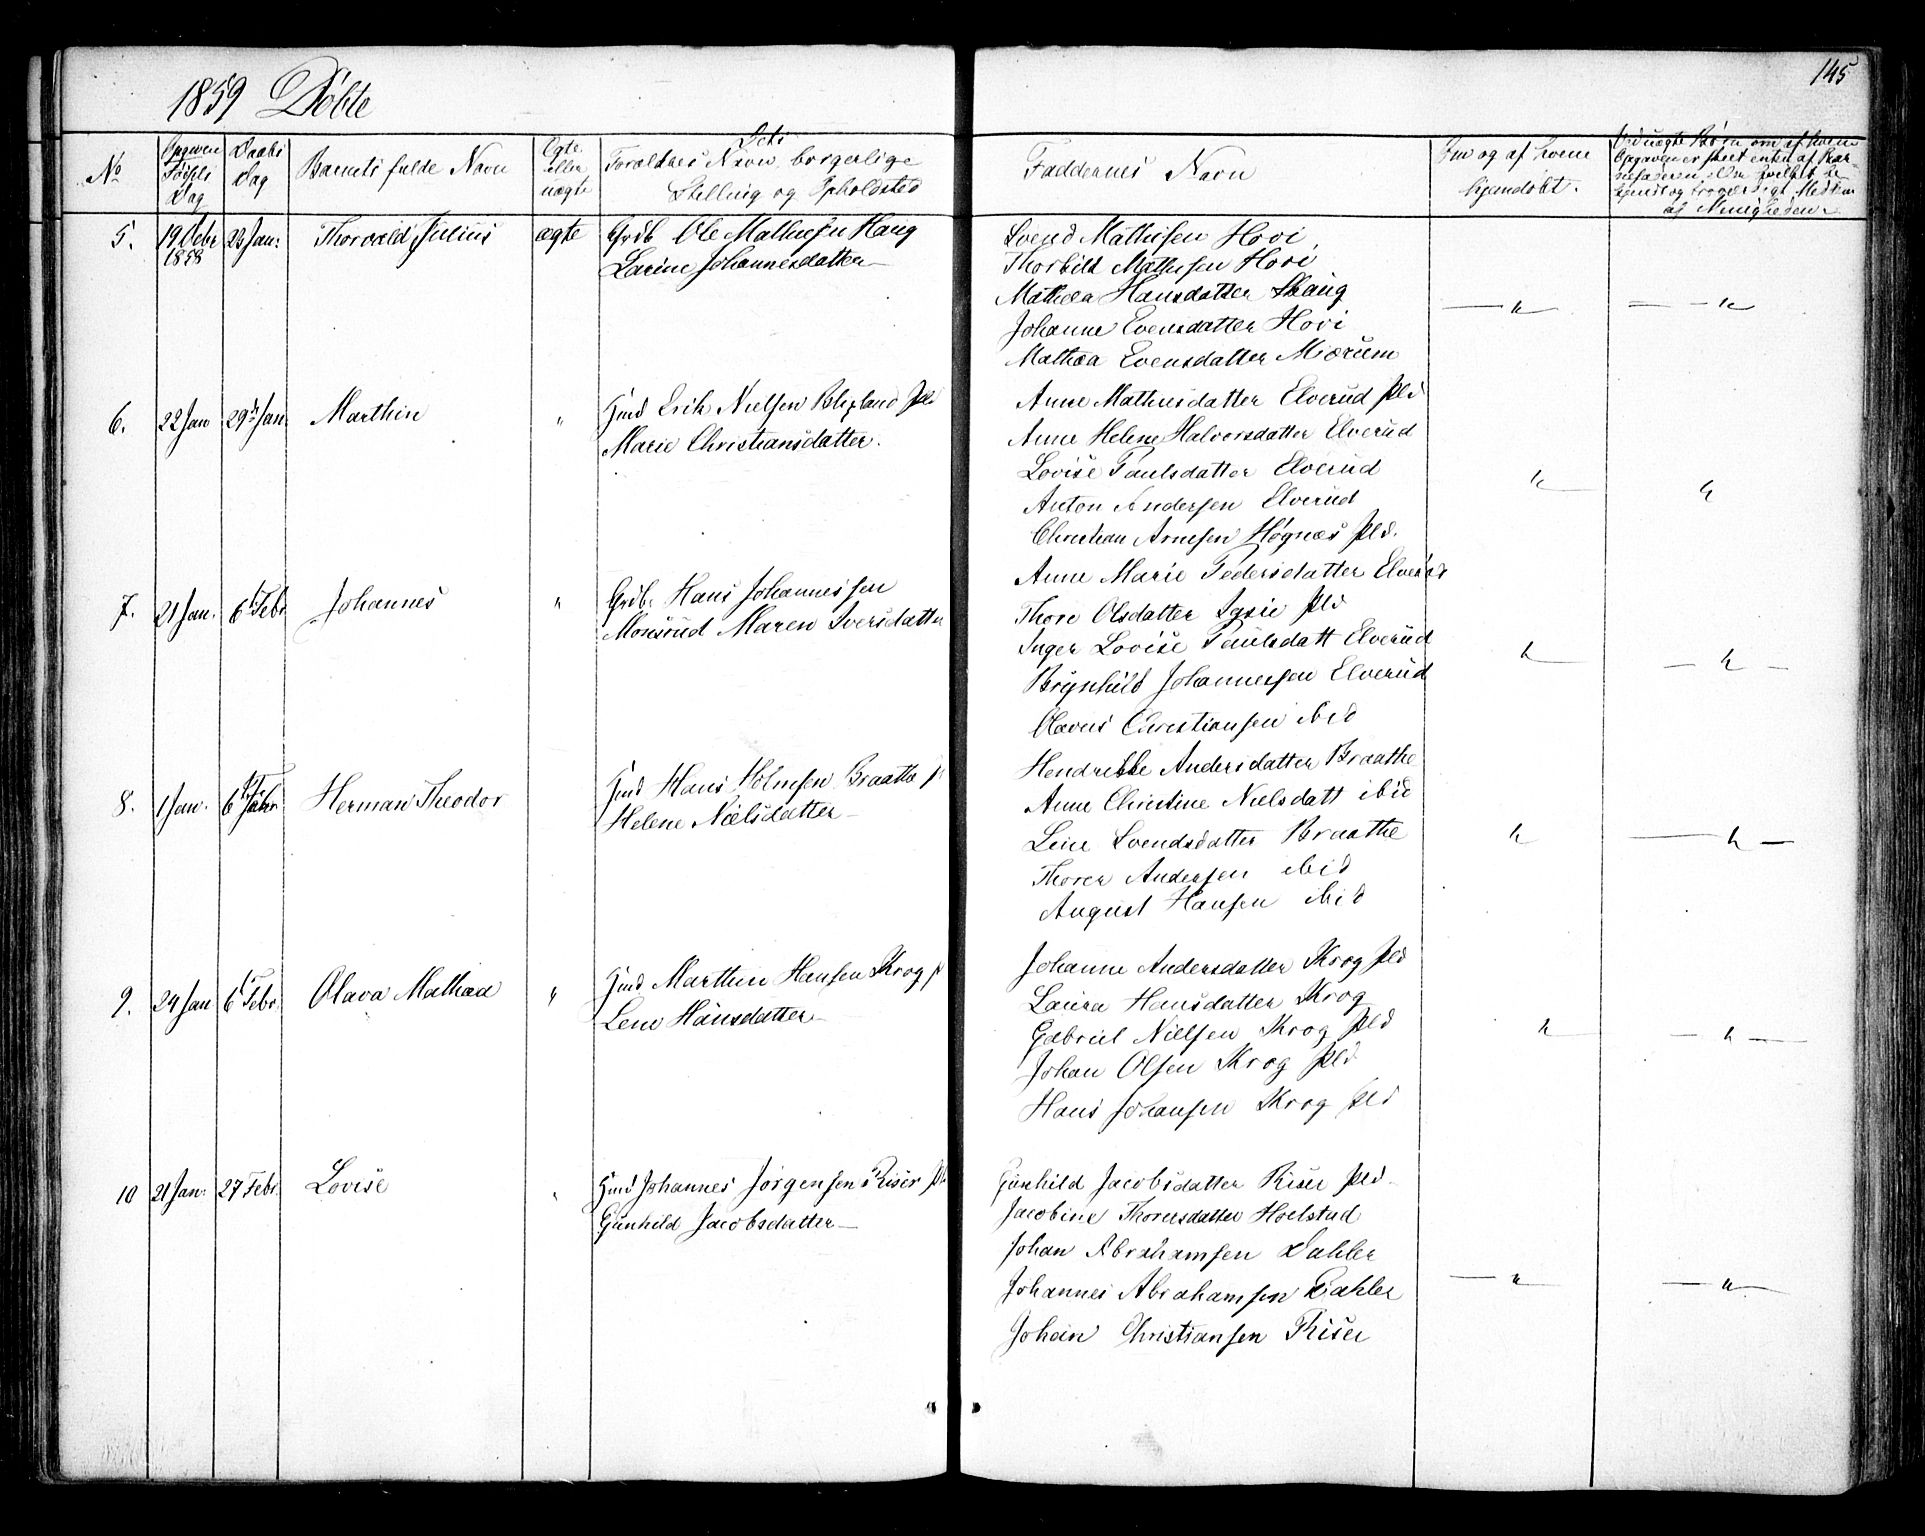 145
1859 Døbte
No
Opgiven Fødsels Dag
Daabs Dag
Barnets fulde Navn
Ægte eller uægte
Forældres Navn borgerlige
Stilling og Opholdsted
Faddernes Navn
Om og af hvem
hjemdøbt.
5. 19 Octbr 1858 23 Jan: Thorvald Julius ægte Grdb Ole Mathisen Haug
Larine Johannesdatter
Svend Mathisen Hovi
Thorkild Mathisen Hovi
Mathea Hansdatter Skaug
Johanne Evensdatter Hovi
Mathæa Evensdatter Miørum
6. 22 Jan 29 Jan. Marthin " Hmd Erik Nielsen Pld
Marie Christiansdatter.
Anne Mathisdatter Elverud Pld
Anne Helene Halvorsdatter Elverud
Lovise Paulsdatter Elverud
Anton Andersen Elverud
Christian Arnesen Høgnæs Pld.
7. 21 Jan. 6 Febr Johannes " Grdb. Hans Johannessen
Monsrud Maren Iversdatter
Anne Marie Pedersdatter Elverud
Thore Olsdatter Pld
Inger Lovise Paulsdatt Elverud
Brynhild Johannesen Elverud
Olavus Christiansen ibid
8. 1 Jan. 6 Febr Herman Theodor " Hmd Hans Holmsen Braathe
Helene Nielsdatter
Hendrikke Andersdatter Braathe
Anne Christine Nielsdatt ibid
Lene Svendsdatter Braathe
Thorer Andersen ibid
August Hansen ibid
9. 24 Jan 6 Febr. Olava Mathæa " Hmd Marthin Hansen Krog
Lene Hansdatter
Johanne Andersdatter Krog Pld
Laura Hansdatter Krog
Gabriel Nielsen Krog Pld
Johan Olsen Krog Pld
Hans Johansen Krog Pld
10 21 Jan. 27 Febr. Lovise " Hmd Johannes Jørgensen Riser Pl
Gunhild Jacobsdatter
Gunhild Jacobsdatter Riser Pld.
Jacobine Thorersdatter Hoelstad
Johan Abrahamsen Dahler
Johannes Abrahamsen Dahler
Johan Christiansen Riser